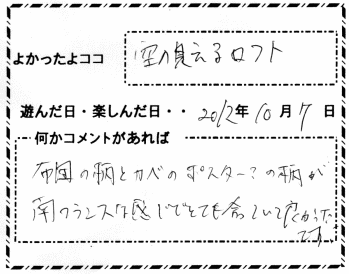 よかったよココ
空の見えるロフト
遊んだ日・楽しんだ日・・ 2012年 10 月 7 日
何かコメントがあれば
布団の柄とカベのポスター？の柄が
南フランスな感じでとても合っていて良かった
です。